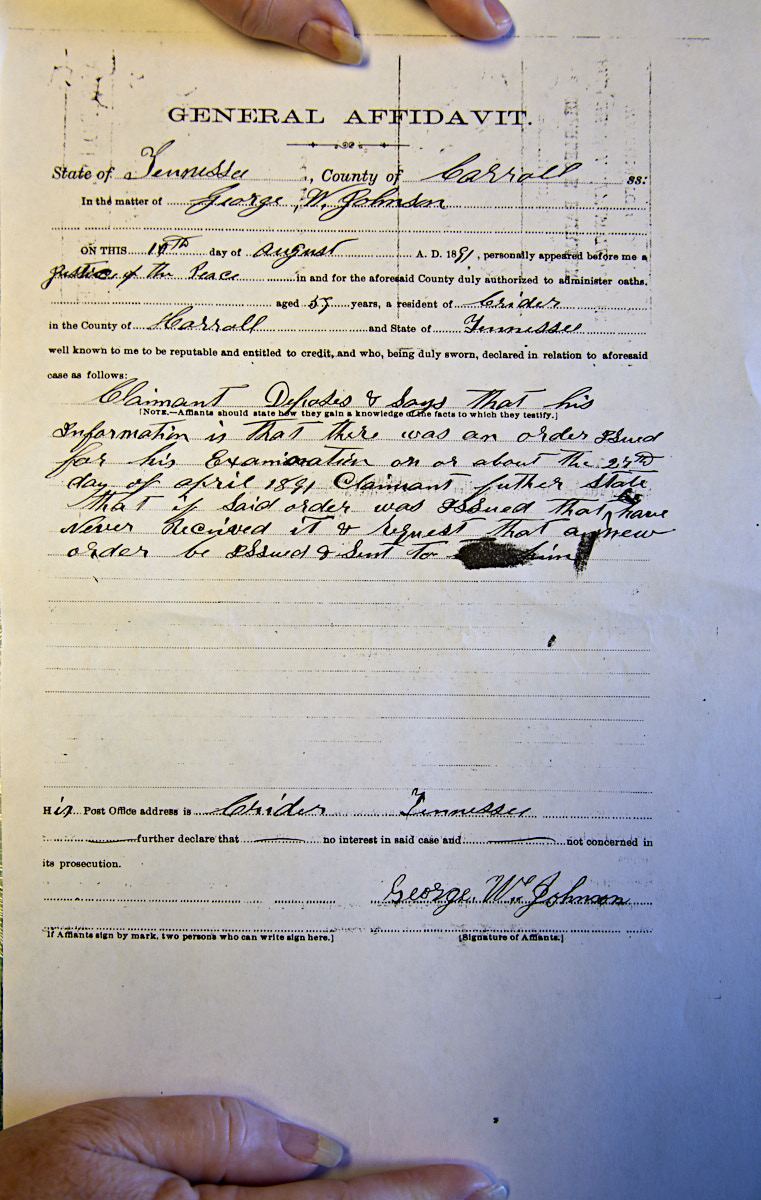 GENERAL AFFIDAVIT.
State of Tennessee, County of Carroll ss:
In the matter of George W. Johnson
ON THIS 19th day of August A. D. 1891, personally appeared before me a
Justice of the Peace in and for the aforesaid County duly authorized to administer oaths.
aged 57 years, a resident of Crider
in the County of Carroll and State of Tennessee
well known to me to be reputable and entitled to credit, and who, being duly sworn, declared in relation to aforesaid
case as follows:
Claimant Deposes & Says that his
[NOTE.—Affiants should state how they gain a knowledge of the facts to which they testify.]
Information is that there was an order Issued
for his Examination on or about the
day of april 1891 Claimant futher state
that if said order was Issued that have
Never Received it & request that a new
order be Issued & Sent to him
His Post Office address is Crider Tennessee
further declare that no interest in said case and not concerned in
its prosecution.
George Wm Johnson
If Affiants sign by mark, two persons who can write sign here.]
[Signature of Affiants.]